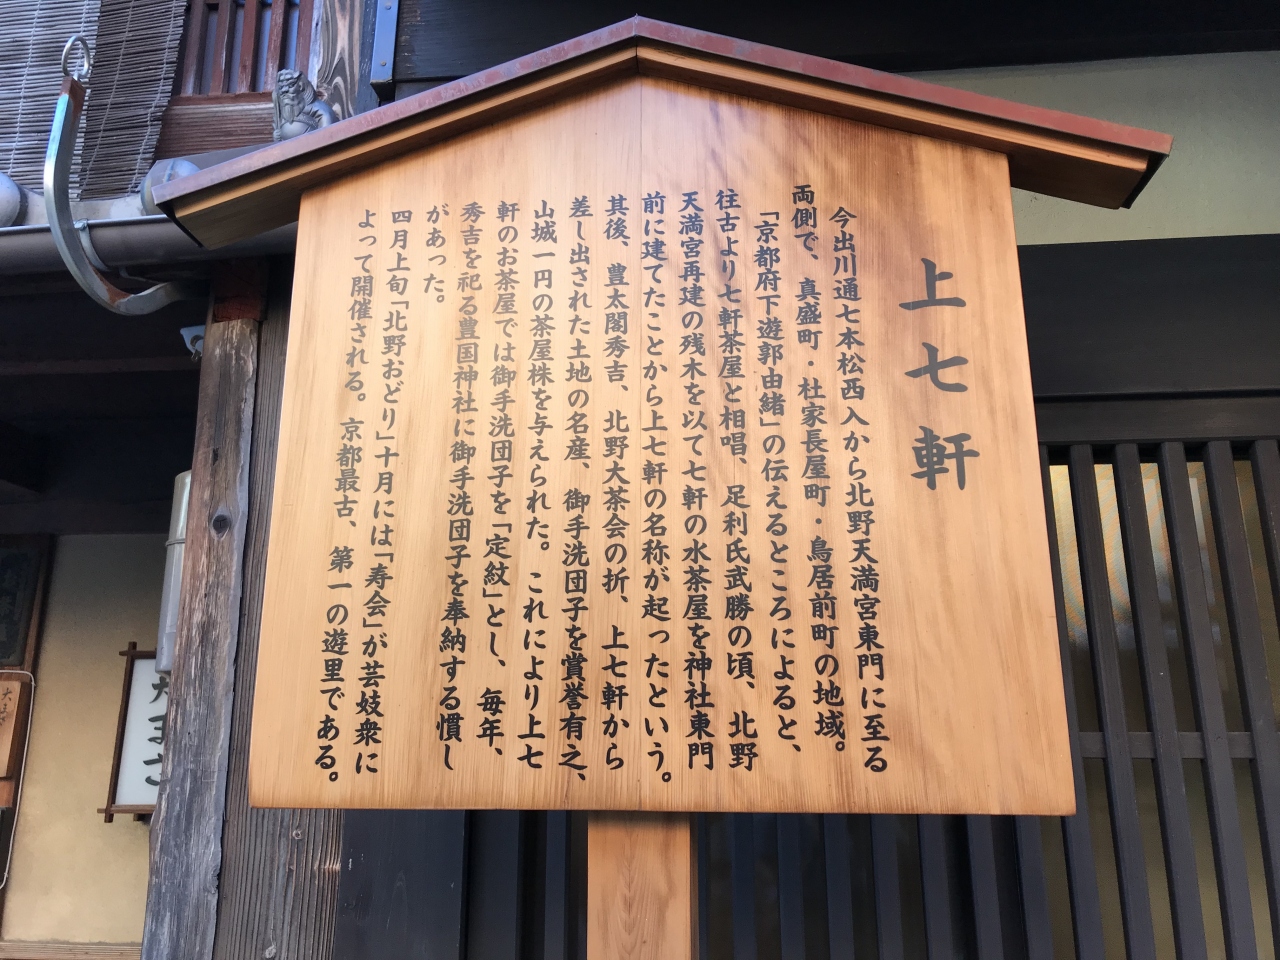 上七軒
今出川通七本松西入から北野天満宮東門に至る
両側で、真盛町・社家長屋町・鳥居前町の地域。
「京都府下遊郭由緒」の伝えるところによると、
往古より七軒茶屋と相唱、足利氏武勝の頃、北野
天満宮再建の残木を以て七軒の水茶屋を神社東門
前に建てたことから上七軒の名称が起ったという。
其後、豊太閤秀吉、北野大茶会の折、上七軒から
差し出された土地の名産、御手洗団子を賞誉有之、
山城一円の茶屋株を与えられた。これにより上七
軒のお茶屋では御手洗団子を「定紋」とし、毎年、
秀吉を祀る豊国神社に御手洗団子を奉納する慣し
があった。
四月上旬「北野おどり」十月には「寿会」が芸妓衆に
よって開催される。京都最古、第一の遊里である。
大まさ